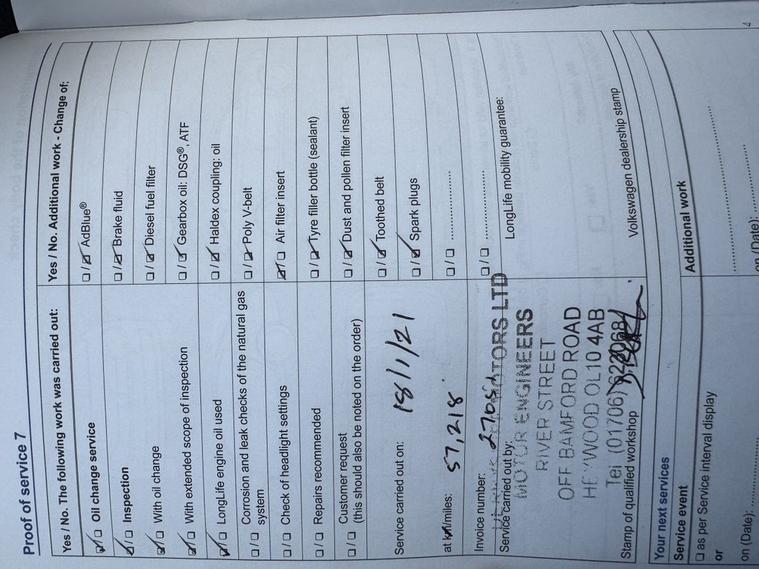 Proof of service 7
Yes / No. The following work was carried out:
Oil change service
Inspection
With oil change
With extended scope of inspection
LongLife engine oil used
Corrosion and leak checks of the natural gas
system
Check of headlight settings
Repairs recommended
Customer request
(this should also be noted on the order)
Service carried out on: 18/1/21
at km/miles: 57,218
Invoice number:
Service carried out by:
MOTORS LTD
MOTOR ENGINEERS
RIVER STREET
OFF BAMFORD ROAD
HEYWOOD OL10 4AB
Tel (01706)
Stamp of qualified workshop
Yes / No. Additional work - Change of:
AdBlue®
Brake fluid
Diesel fuel filter
Gearbox oil: DSG®, ATF
Haldex coupling: oil
Poly V-belt
Air filter insert
Tyre filler bottle (sealant)
Dust and pollen filter insert
Toothed belt
Spark plugs
LongLife mobility guarantee:
Volkswagen dealership stamp
Your next services
Service event
as per Service interval display
or
on (Date):
Additional work
on (Date):
4